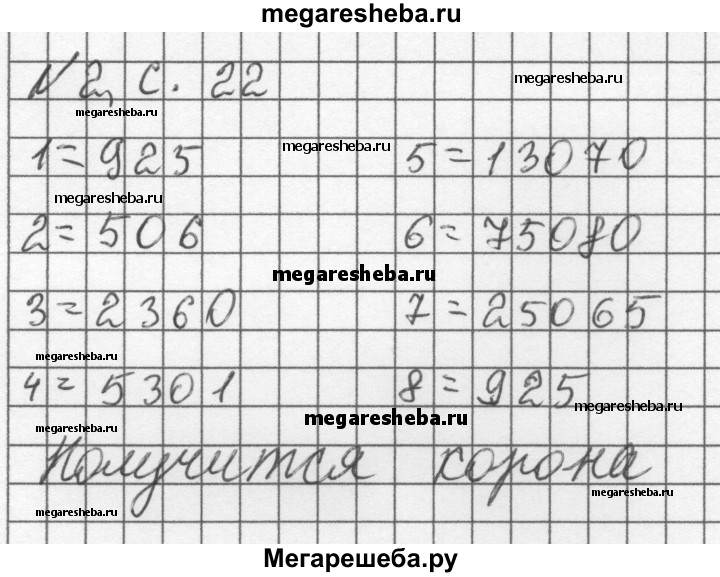 megaresheba.ru
№ 2, с. 22
megaresheba.ru
megaresheba.ru
1 = 925
megaresheba.ru
5 = 13070
megaresheba.ru
2 = 506
6 = 75080
megaresheba.ru
3 = 2360
7 = 25065
megaresheba.ru
4 = 5301
8 = 925
megaresheba.ru
megaresheba.ru
megaresheba.ru
Получится корона
megaresheba.ru
megaresheba.ru
Мегарешеба.ру